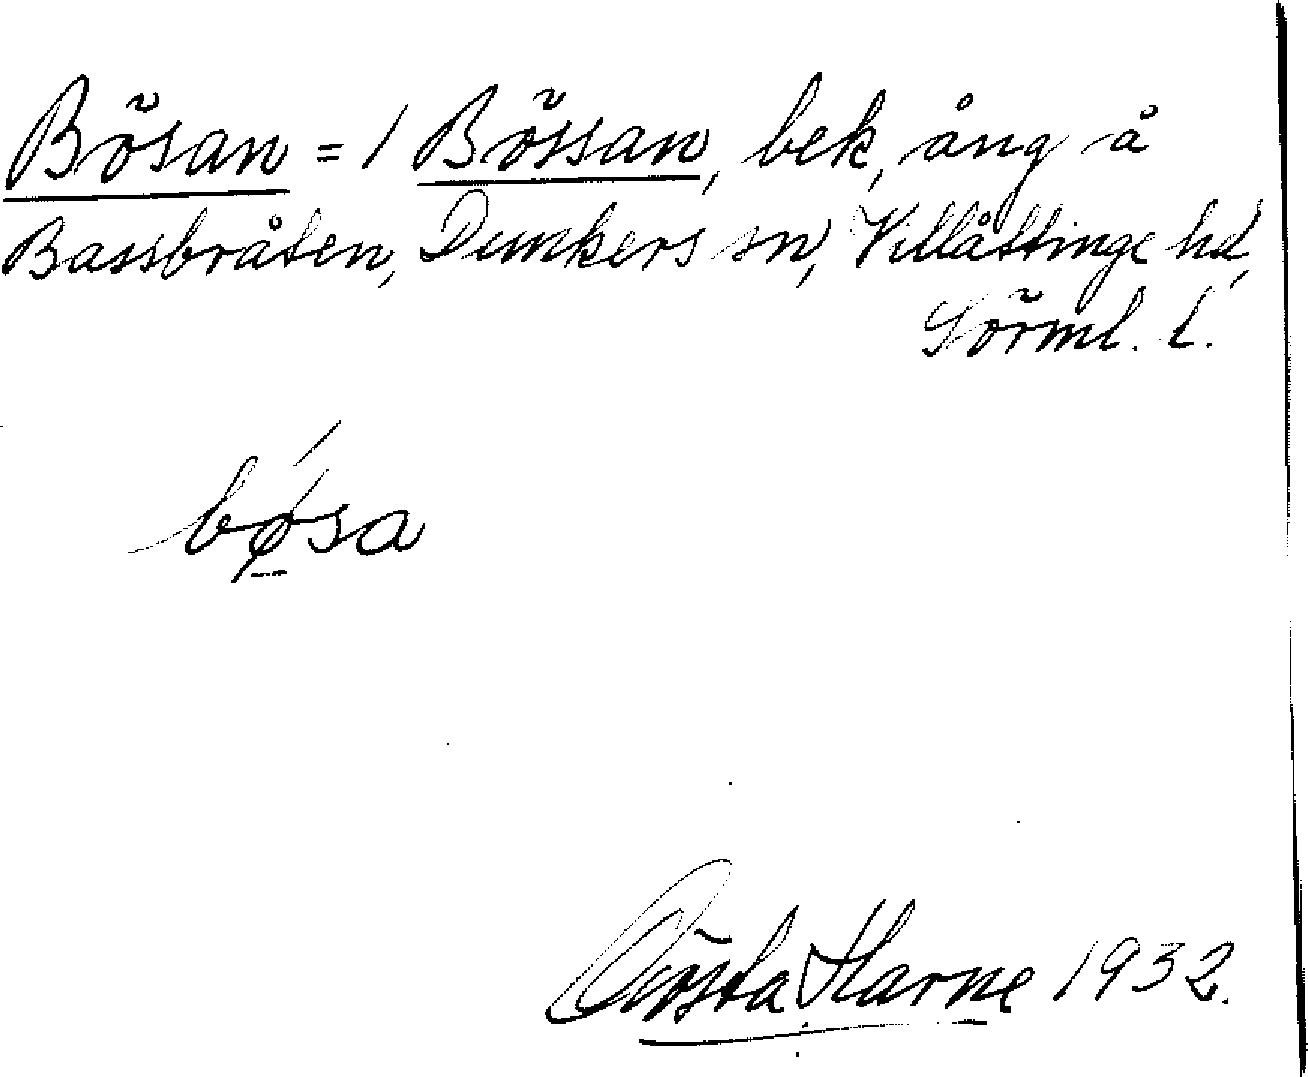 Bösan = / Bössan, bek, äng å
Bassbråten, Dunkers sn, Villåttinge hd,
Sörml. l.
bǿ̱sa
Gösta Harne 1932.